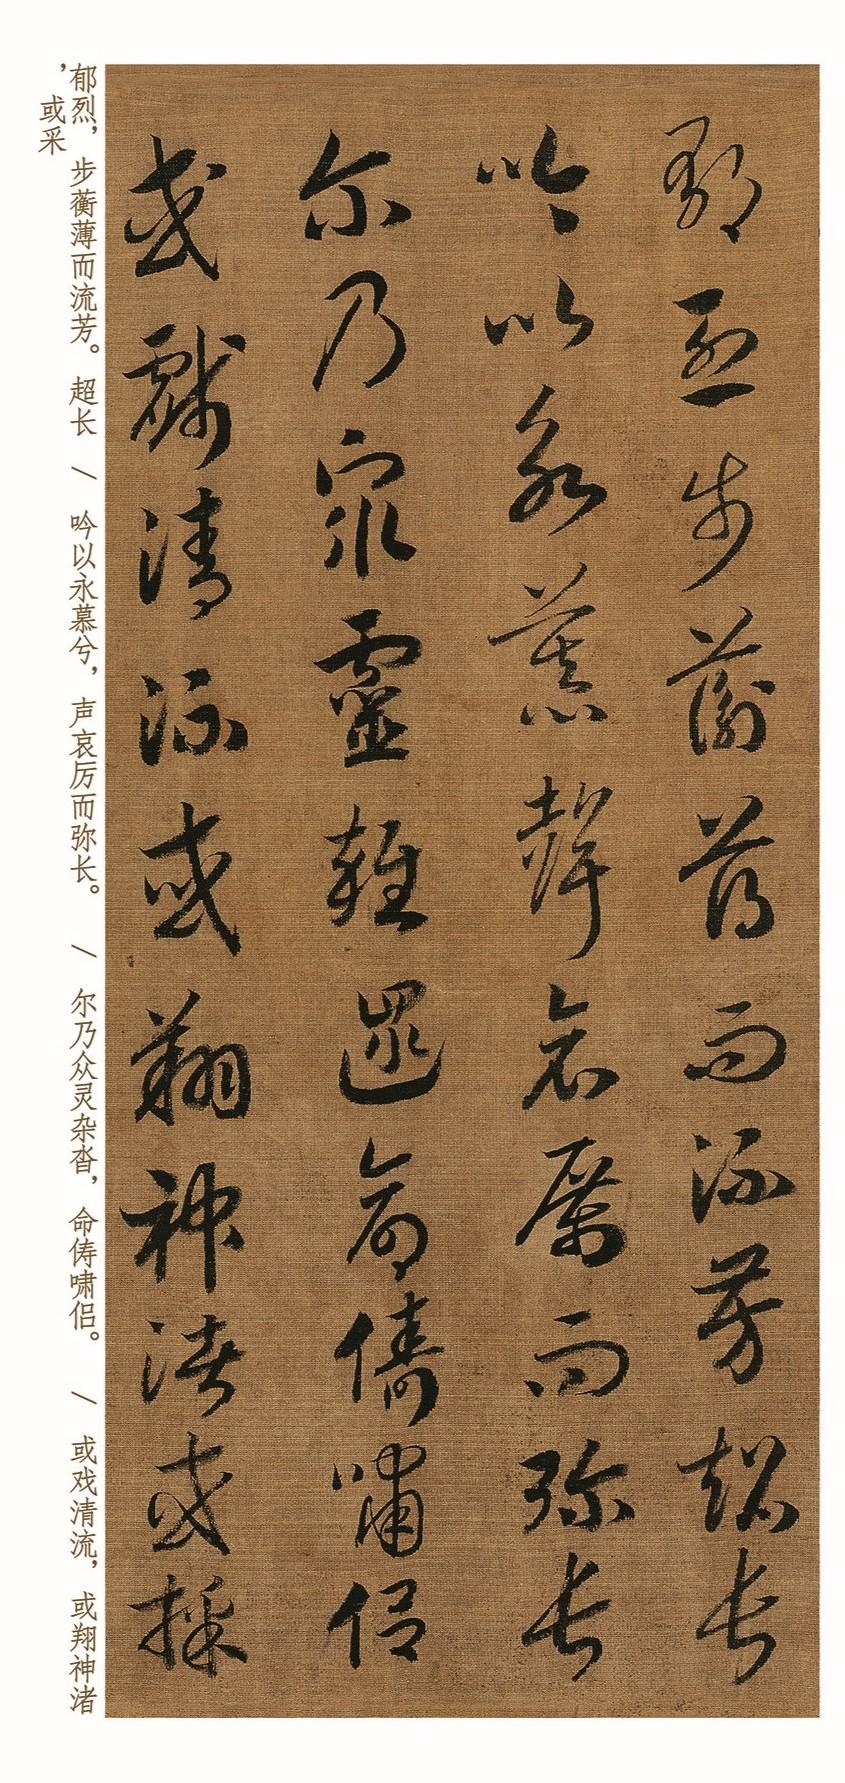 郁烈步蘅薄而流芳超長
吟以永慕聲哀厲而弥長
尔乃眾靈雜遝命儔嘯侣
或戲清流或翔神渚或採
郁烈，步蘅薄而流芳。超长 / 吟以永慕兮，声哀厉而弥长。 / 尔乃众灵杂沓，命俦啸侣。 / 或戏清流，或翔神渚
，或采